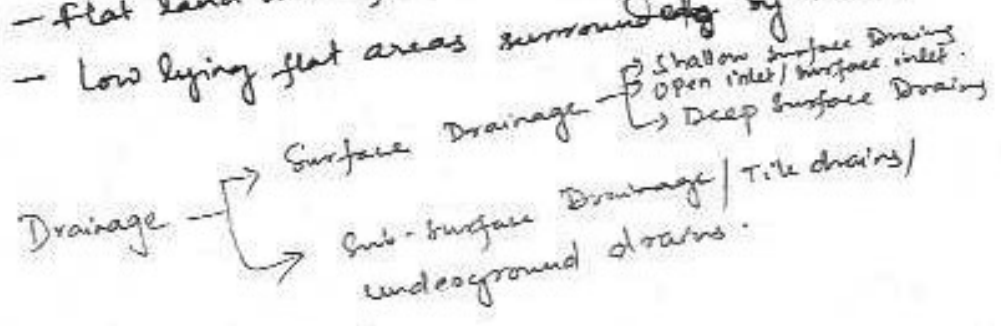 - flat land
- Low lying flat areas surrounded by
Drainage → Surface Drainage → Shallow Surface Drains
Open inlet/surface inlet.
→ Deep Surface Drains
→ Sub-surface Drainage/Tile drains/
underground drains.